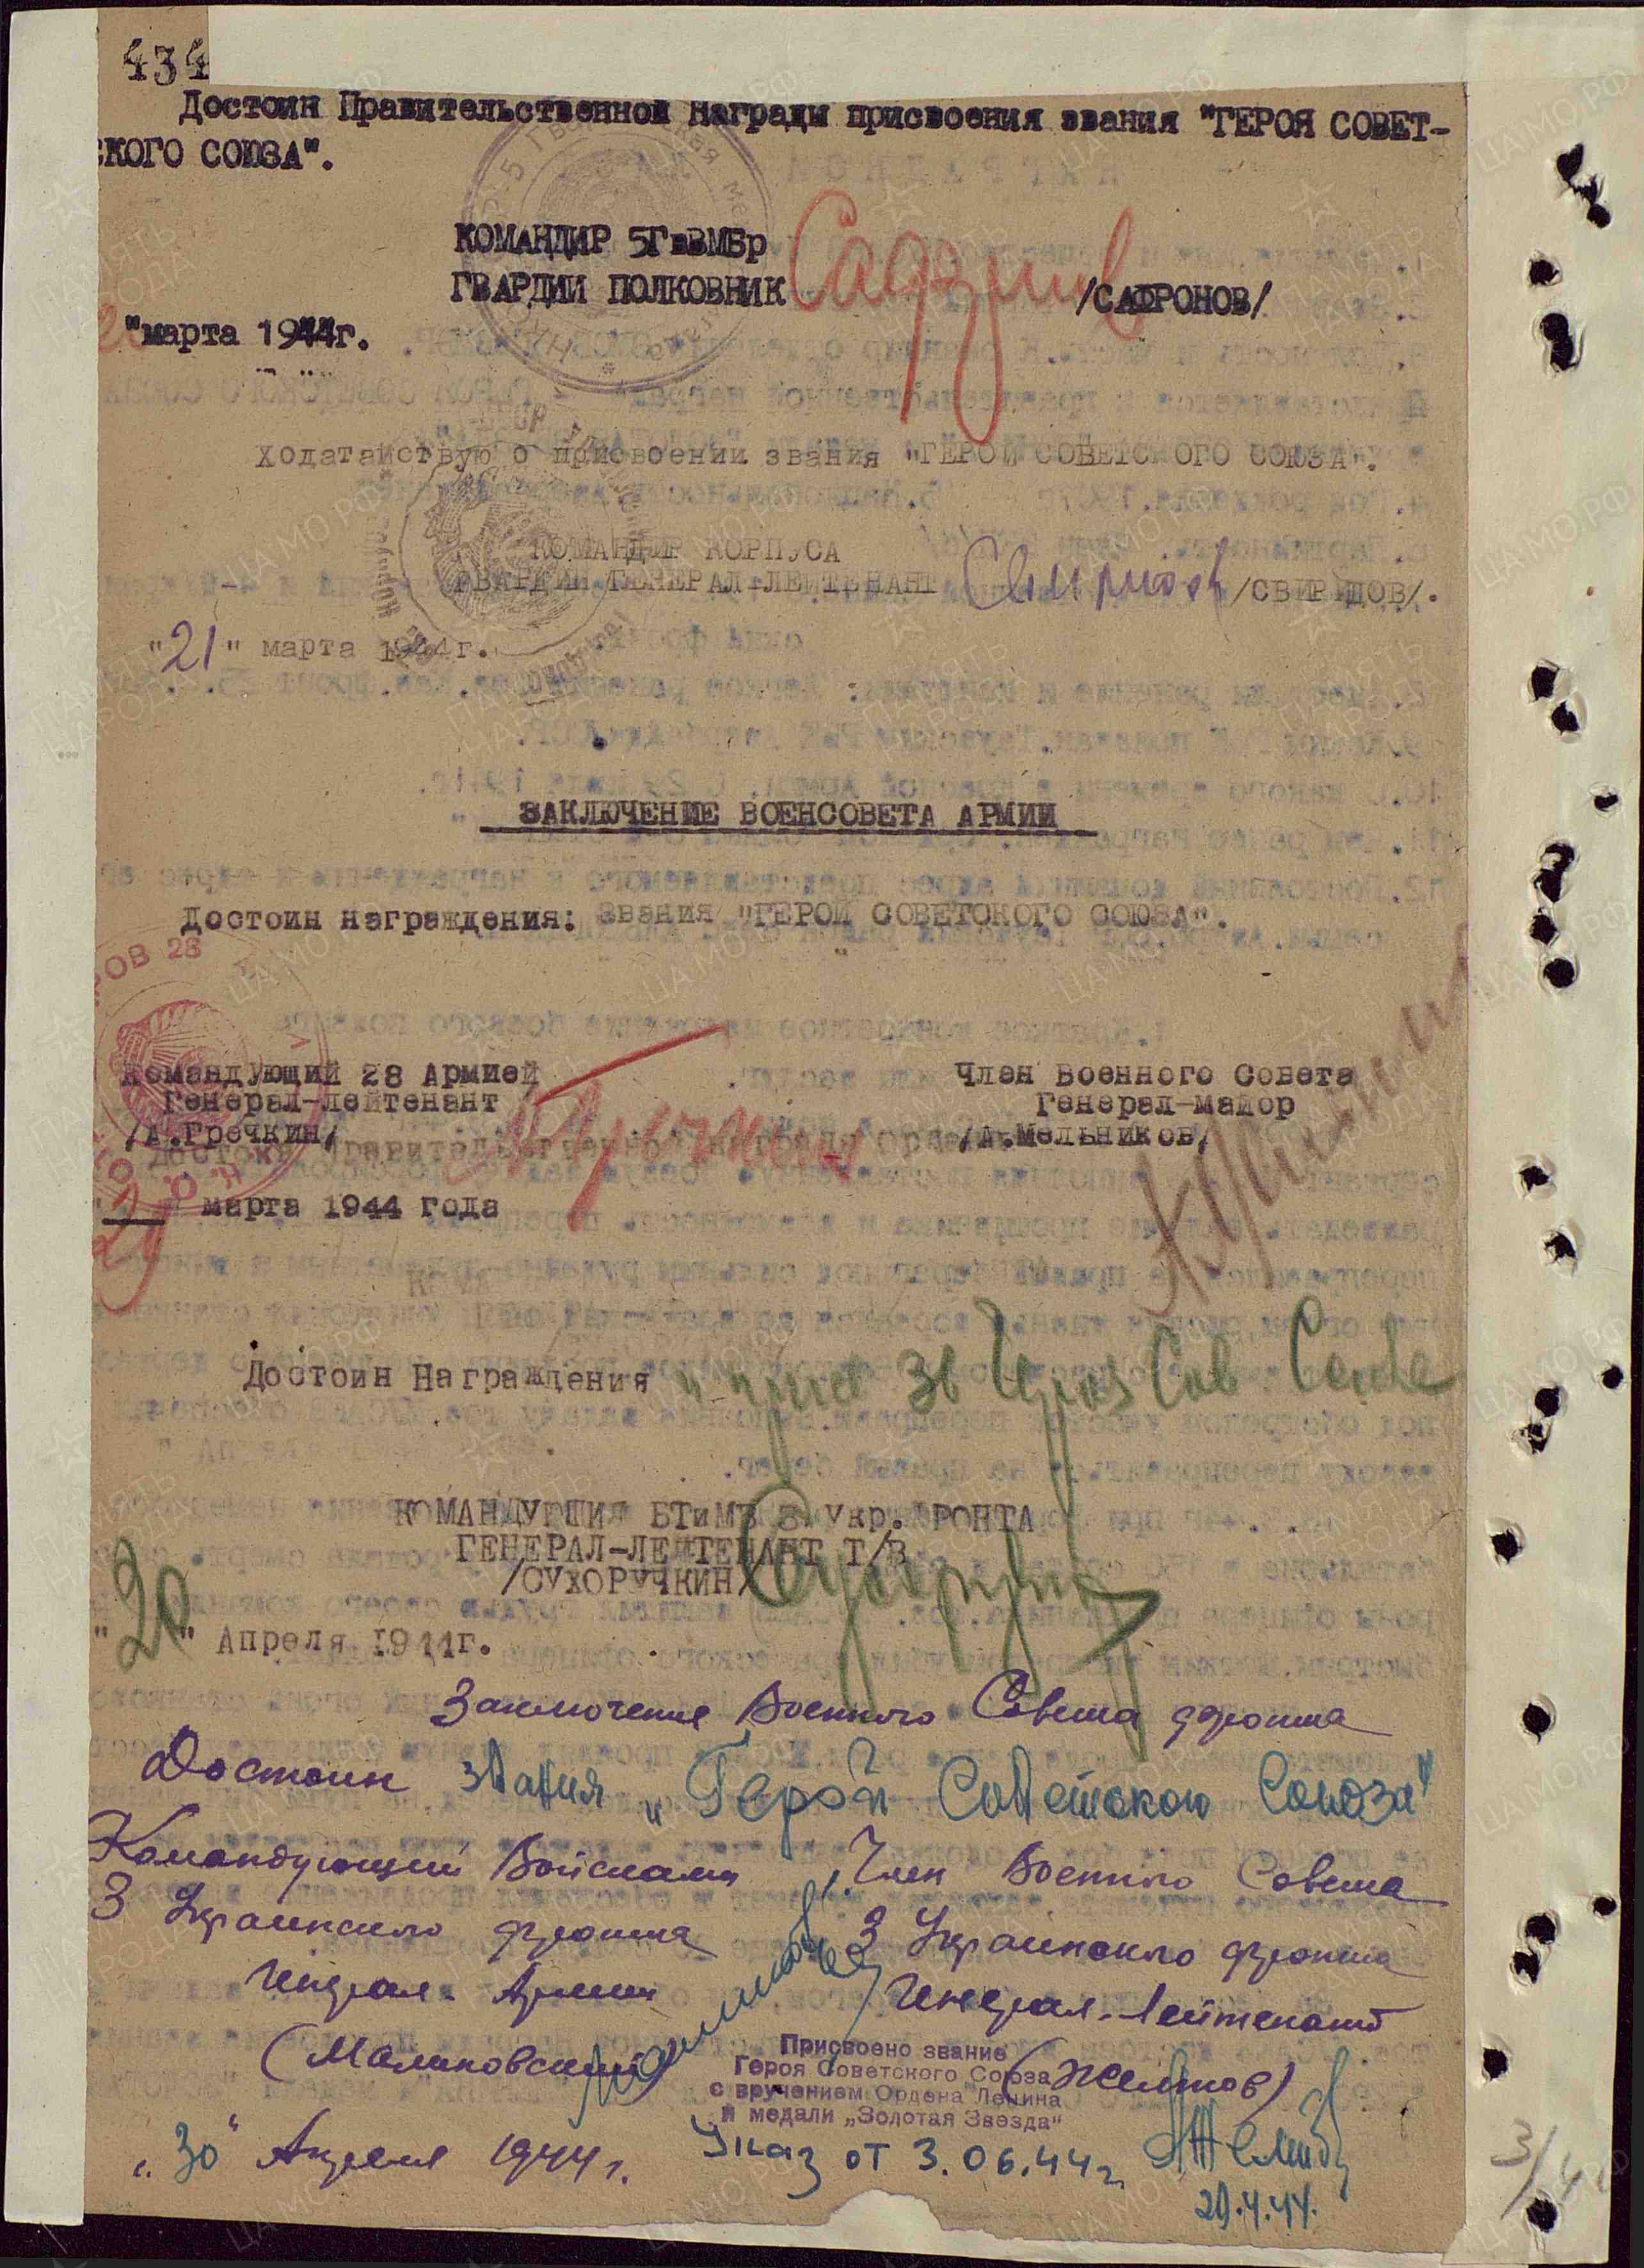 434
Достоин Правительственной Награды присвоения звания "ГЕРОЯ СОВЕТ-
СКОГО СОЮЗА".
КОМАНДИР 5ГвВМБр
ГВАРДИИ ПОЛКОВНИК /САФРОНОВ/
"марта 1944г.
Ходатайствую о присвоении звания "ГЕРОЙ СОВЕТСКОГО СОЮЗА".
КОМАНДИР КОРПУСА
ГВАРДИИ ГЕНЕРАЛ-ЛЕЙТЕНАНТ Свиридов /СВИРИДОВ/.
"21" марта 1944г.
ЗАКЛЮЧЕНИЕ ВОЕНСОВЕТА АРМИИ
Достоин награждения: Звания "ГЕРОЙ СОВЕТСКОГО СОЮЗА".
Командующий 28 Армией
Генерал-лейтенант
/А.Гречкин/
Член Военного Совета
Генерал-майор
/А.Мельников/
марта 1944 года
Достоин Награждения
КОМАНДУЮЩИЙ БТиМВ 3 Укр. ФРОНТА
ГЕНЕРАЛ-ЛЕЙТЕНАНТ Т/В
/СУХОРУЧКИН/
"20" Апреля 1944г.
Заключение Военного Совета фронта
Достоин звания „Герой Советского Союза"
Командующий Войсками
3 Украинского фронта
Генерал Армии
(Малиновский)
Член Военного Совета
3 Украинского фронта
Генерал-Лейтенант
(Желтов)
Присвоено звание
Героя Советского Союза
с вручением Ордена Ленина
и медали „Золотая Звезда"
„30" Апреля 1944 г.
Указ от 3.06.44г.
29.4.44.